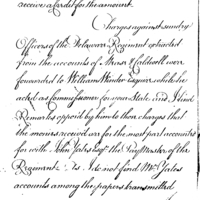 receive a Credit for the amount.
Charges against sundry
Officers of the Delaware Regiment extracted
from the accounts of Messrs Caldwell were
forwarded to William Winder Esquire while he
acted as Commissioner for your State, and I find
Remarks opposed by him to those charges that
the monies received was for the most part accounted
for with John Yates Esqr the Pay Master of the
Regiment. As I do not find Mr Yates
accounts among the papers transmitted